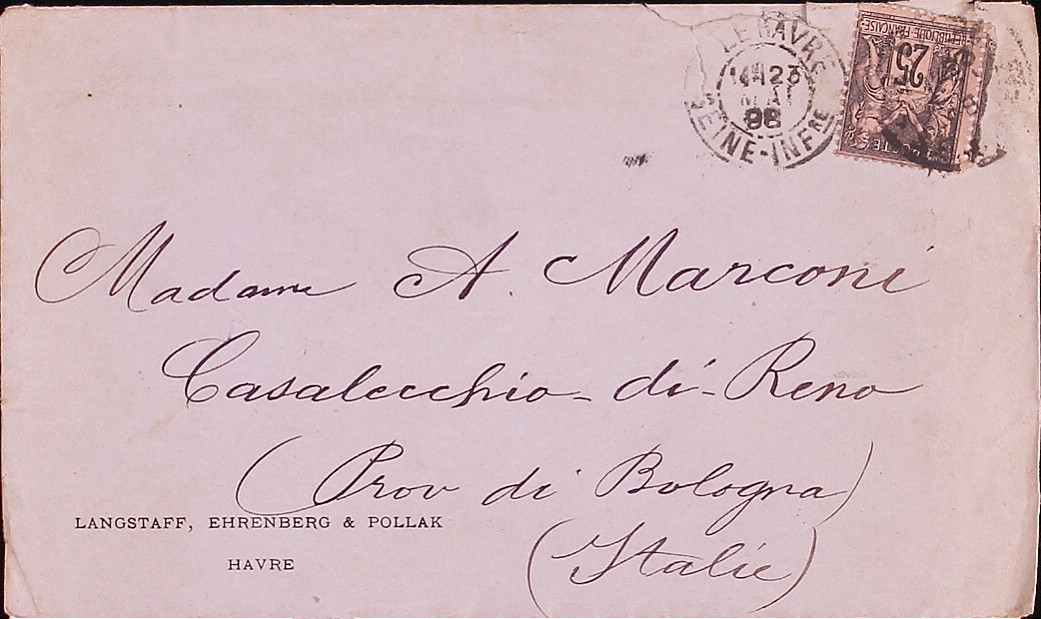 LE HAVRE
23
MAI
98
SEINE-INFRE
REPUBLIQUE FRANCAISE
25
POSTES
Madame A. Marconi
Casalecchio-di-Reno
(Prov di Bologna)
(Italie)
LANGSTAFF, EHRENBERG & POLLAK
HAVRE